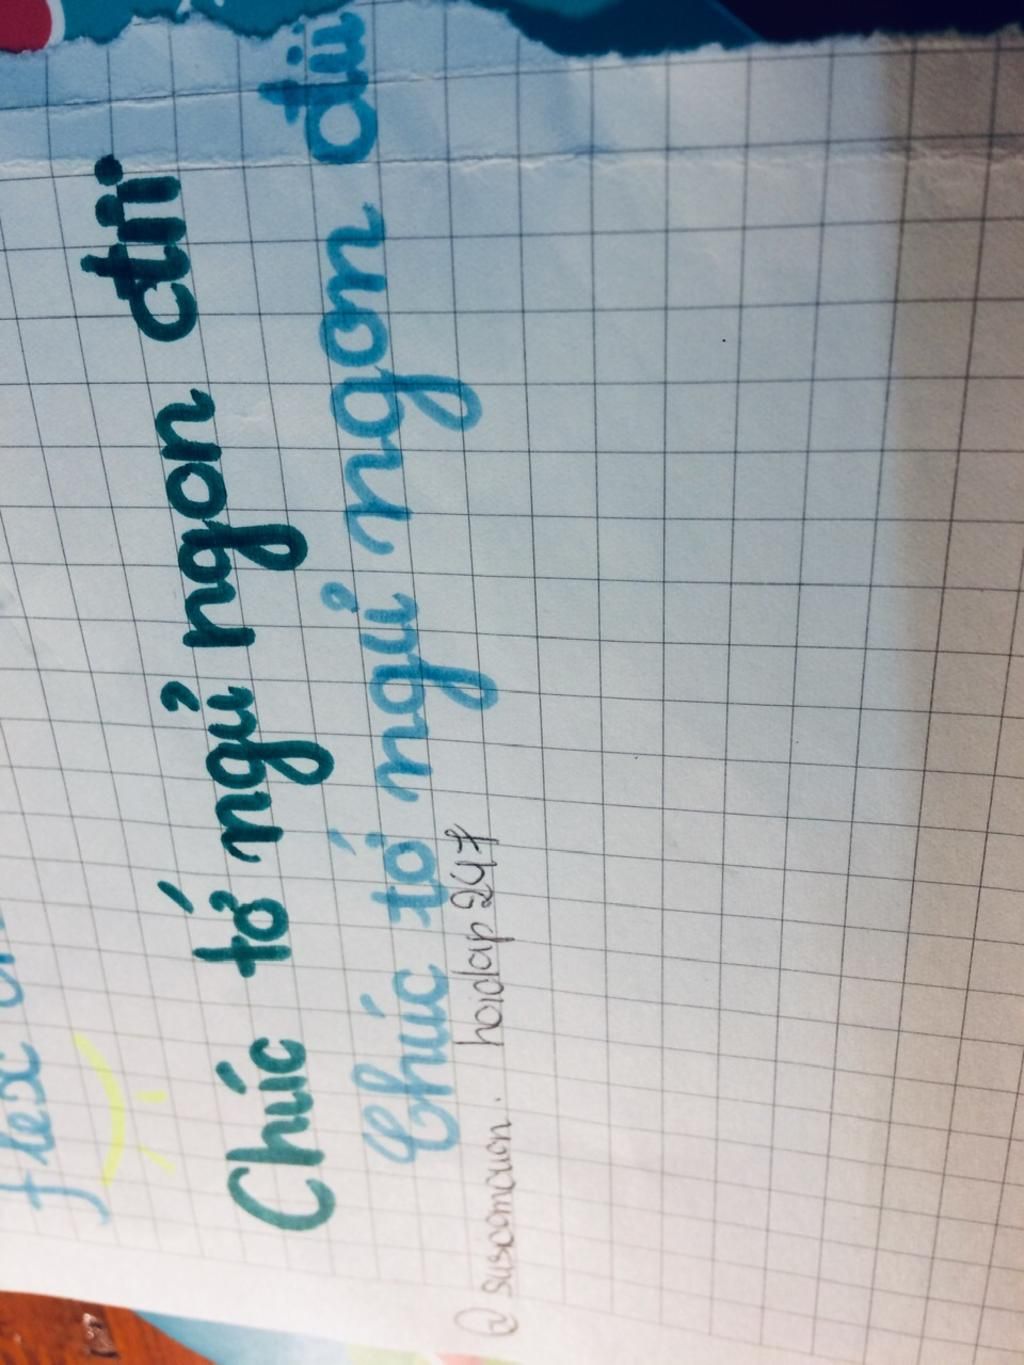 flex
Chúc tớ ngủ ngon đii
Chúc tớ ngủ ngon đii
@susomouon. hoidap247